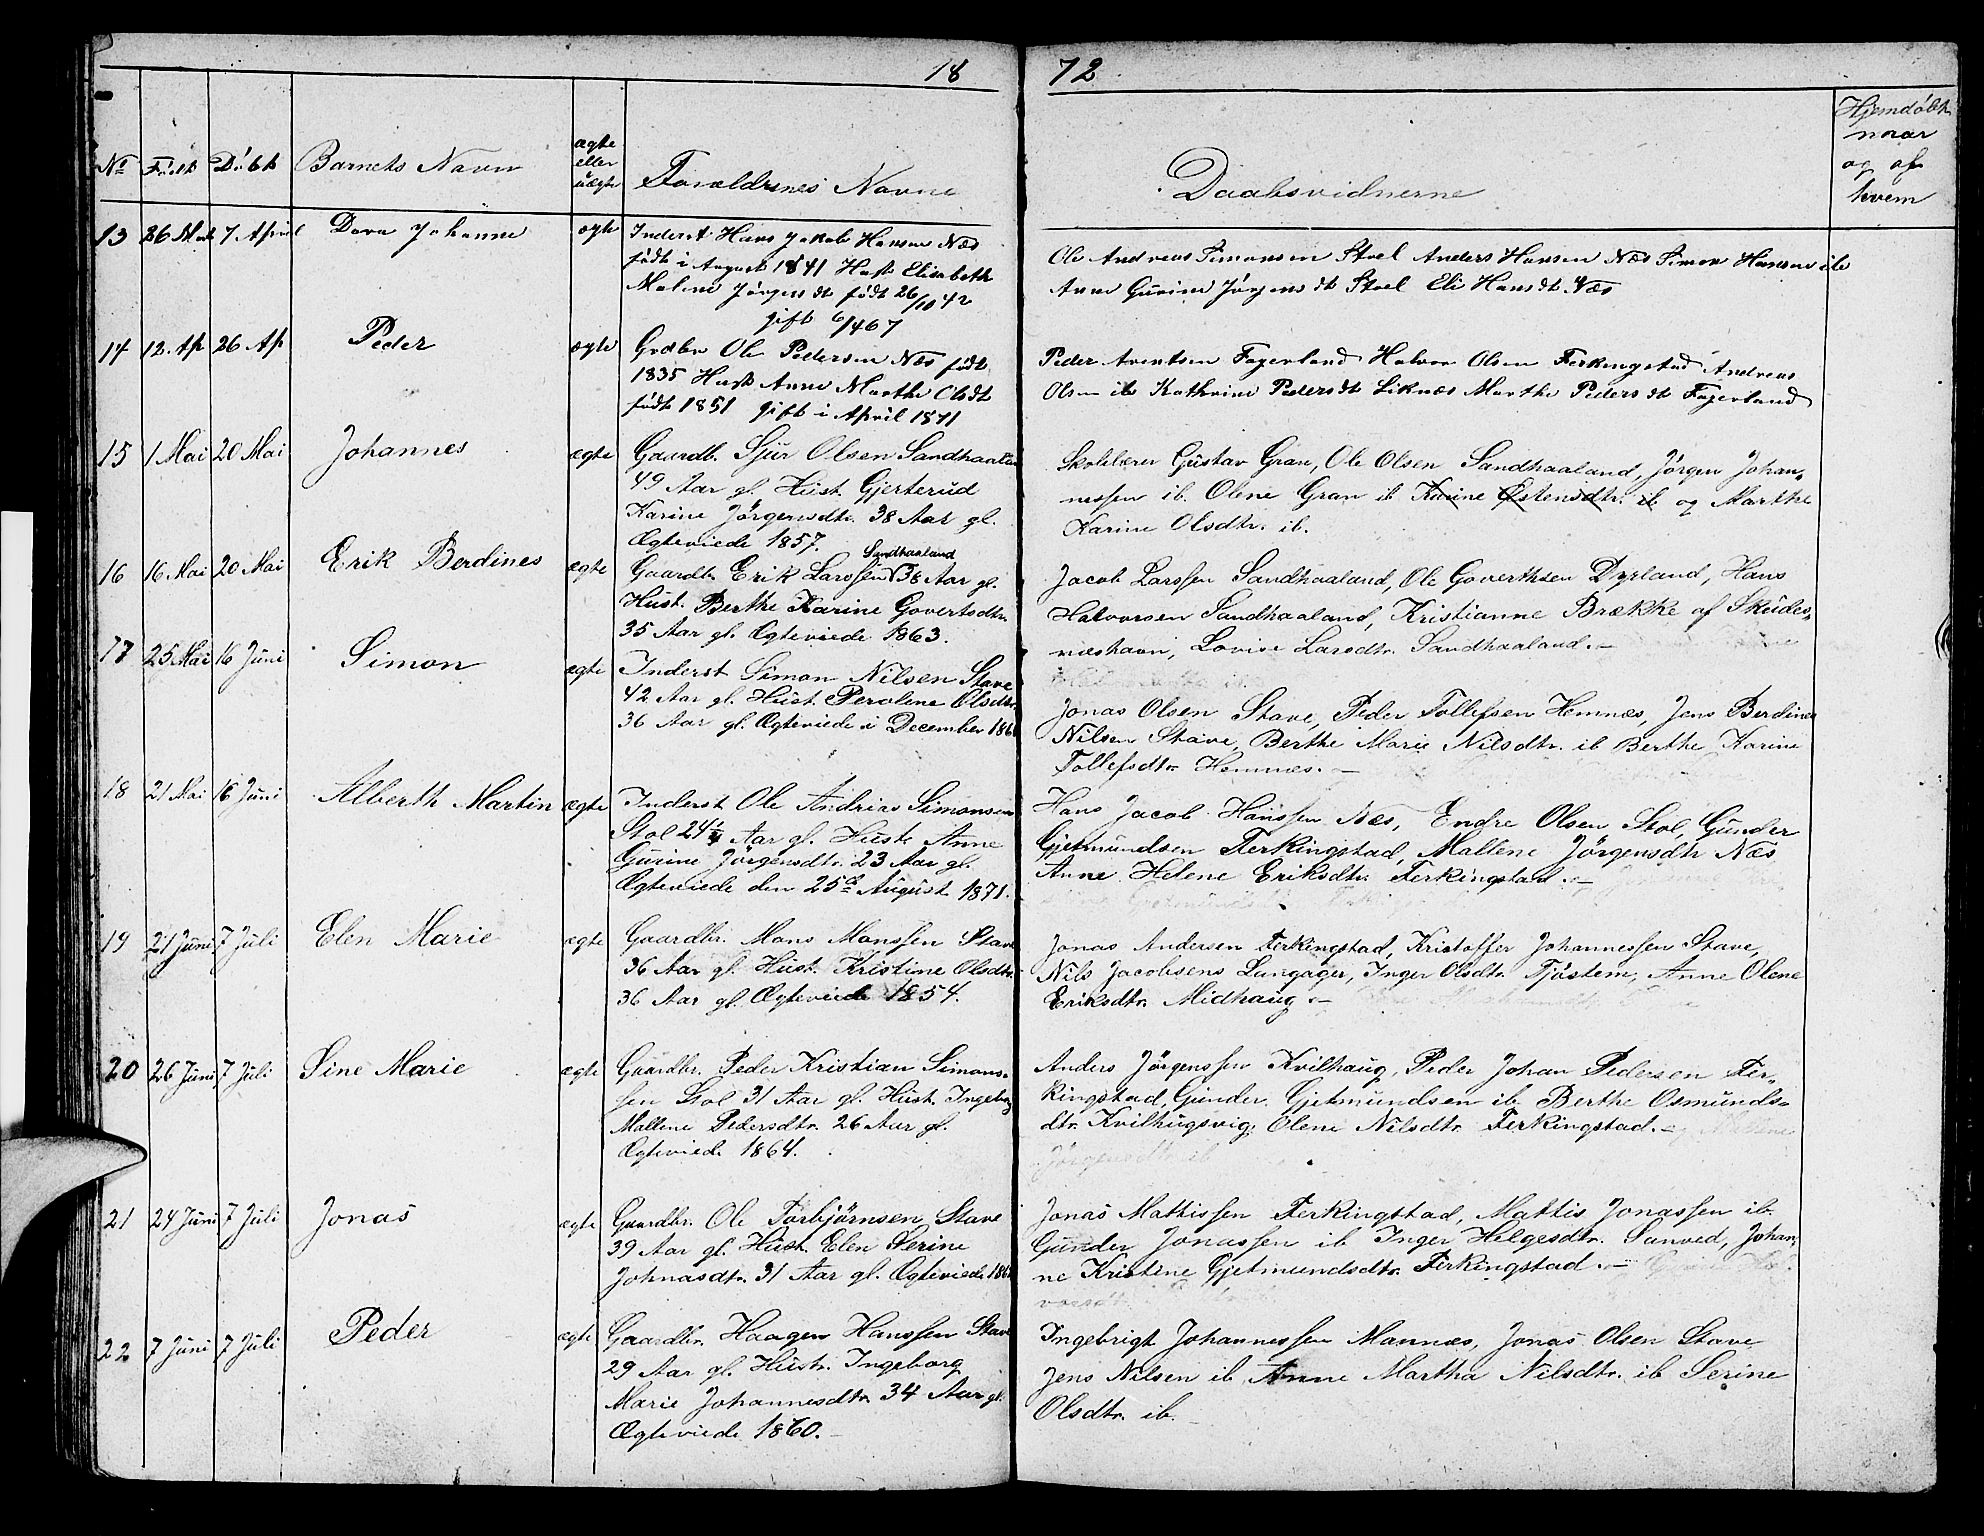 18 72
No Födt Döbt Barnets Navn ægte eller uægte Forældrenes Navne Daabsvidnerne Hjemdöbt naar og af hvem
13 26 Mar 7 April Dora Johanne ægte Inderst Hans Jakob Hansen Næs
födt i August 1841 Hust Elisabeth
Malene Jörgensdt födt 26/10 42
gift 6/4 67
Ole Andreas Simonsen Stoel Anders Hansen Næs Simon Hansen ib
Anne Gurine Jörgensdt Stoel Eli Hansdt Næs
14 12. Ap 26 Ap Peder ægte Grdbr Ole Pedersen Næs födt
1835 Hust Anne Marthe Olsdt
födt 1851 gift i April 1871
Peder Arentsen Fagerland Halvor Olsen Ferkingstad Andreas
Olsen ib Kathrine Pedersdt Liknæs Marthe Pedersdt Fagerland
15 1 Mai 20 Mai Johannes ægte Gaardb. Sjur Olsen Sandhaaland
49 Aar gl. Hust. Gjerterud
Karine Jörgensdtr. 38 Aar gl.
Ægteviede 1857.
Skolelærer Gustav Gran, Ole Olsen Sandhaaland, Jörgen Johan-
nessen ib. Olene Gran ib Karine Østensdtr. ib og Marthe
Karine Olsdtr. ib.
16 16 Mai 20 Mai Erik Berdines ægte Gaardb. Erik Larssen Sandhaaland 38 Aar gl.
Hust. Berthe Karine Govertsdtr.
35 Aar gl. Ægteviede 1863.
Jacob Larssen Sandhaaland, Ole Goverthsen Dyrland, Hans
Halvorsen Sandhaaland, Kristianne Brække af Skudes-
næshavn, Lovise Larsdtr. Sandhaaland.-
17 25 Mai 16 Juni Simon ægte Inderst Simon Nilsen Stave
42 Aar gl. Hust. Perolene Olsdtr.
36 Aar gl. Ægteviede i December 186
Jonas Olsen Stave, Peder Tollefsen Hemnæs, Jens Berdines
Nilsen Stave, Berthe Marie Nilsdtr. ib Berthe Karine
Tollefsdtr. Hemnæs.-
18 21 Mai 16 Juni Alberth Martin ægte Inderst Ole Andrias Simonsen
Stol 24¼ Aar gl. Hust. Anne
Gurine Jörgensdtr. 23 Aar gl.
Ægteviede den 25de August 1871.
Hans Jacob Hanssen Næs, Endre Olsen Stol, Gunder
Gjetmundsen Ferkingstad, Mallene Jörgensdtr Næs
Anne Helene Eriksdtr. Ferkingstad.-
19 21 Juni 7 Juli Elen Marie ægte Gaardbr. Mons Monssen Stave
36 Aar gl. Hust. Kristine Olsdtr.
36 Aar gl. Ægteviede 1854.
Jonas Andersen Ferkingstad, Kristoffer Johannessen Stave,
Nils Jacobsens Langager, Inger Olsdtr. Tjöstem, Anne Olene
Eriksdtr. Midhaug.-
20 26 Juni 7 Juli Sine Marie ægte Gaardbr. Peder Kristian Simons-
sen Stol 31 Aar gl. Hust. Ingeborg
Mallene Pedersdtr. 26 Aar gl.
Ægteviede 1864.
Anders Jörgenssen Kvilhaug, Peder Johan Pedersen Fer-
kingstad, Gunder Gjetmundsen ib Berthe Osmunds-
dtr. Kvilhugsvig, Olene Nilsdtr. Ferkingstad.- og Mallene
Jörgensdtr. ib
21 24 Juni 7 Juli Jonas ægte Gaardbr. Ole Torbjörnsen Stave
39 Aar gl. Hust. Elen Serine
Johnasdtr. 31 Aar gl. Ægteviede 186
Jonas Mathissen Ferkingstad, Mattis Jonassen ib.
Gunder Jonassen ib Inger Helgesdtr. Sanved, Johan-
ne Kristine Gjetmundsdtr. Ferkingstad.-
22 7 Juni 7 Juli Peder ægte Gaardbr. Haagen Hanssen Stave
29 Aar gl. Hustr. Ingeborg
Marie Johannesdtr. 34 Aar gl.
Ægteviede 1860.-
Ingebrigt Johannessen Mannæs, Jonas Olsen Stave
Jens Nilsen ib Anne Martha Nilsdtr. ib Serine
Olsdtr. ib.